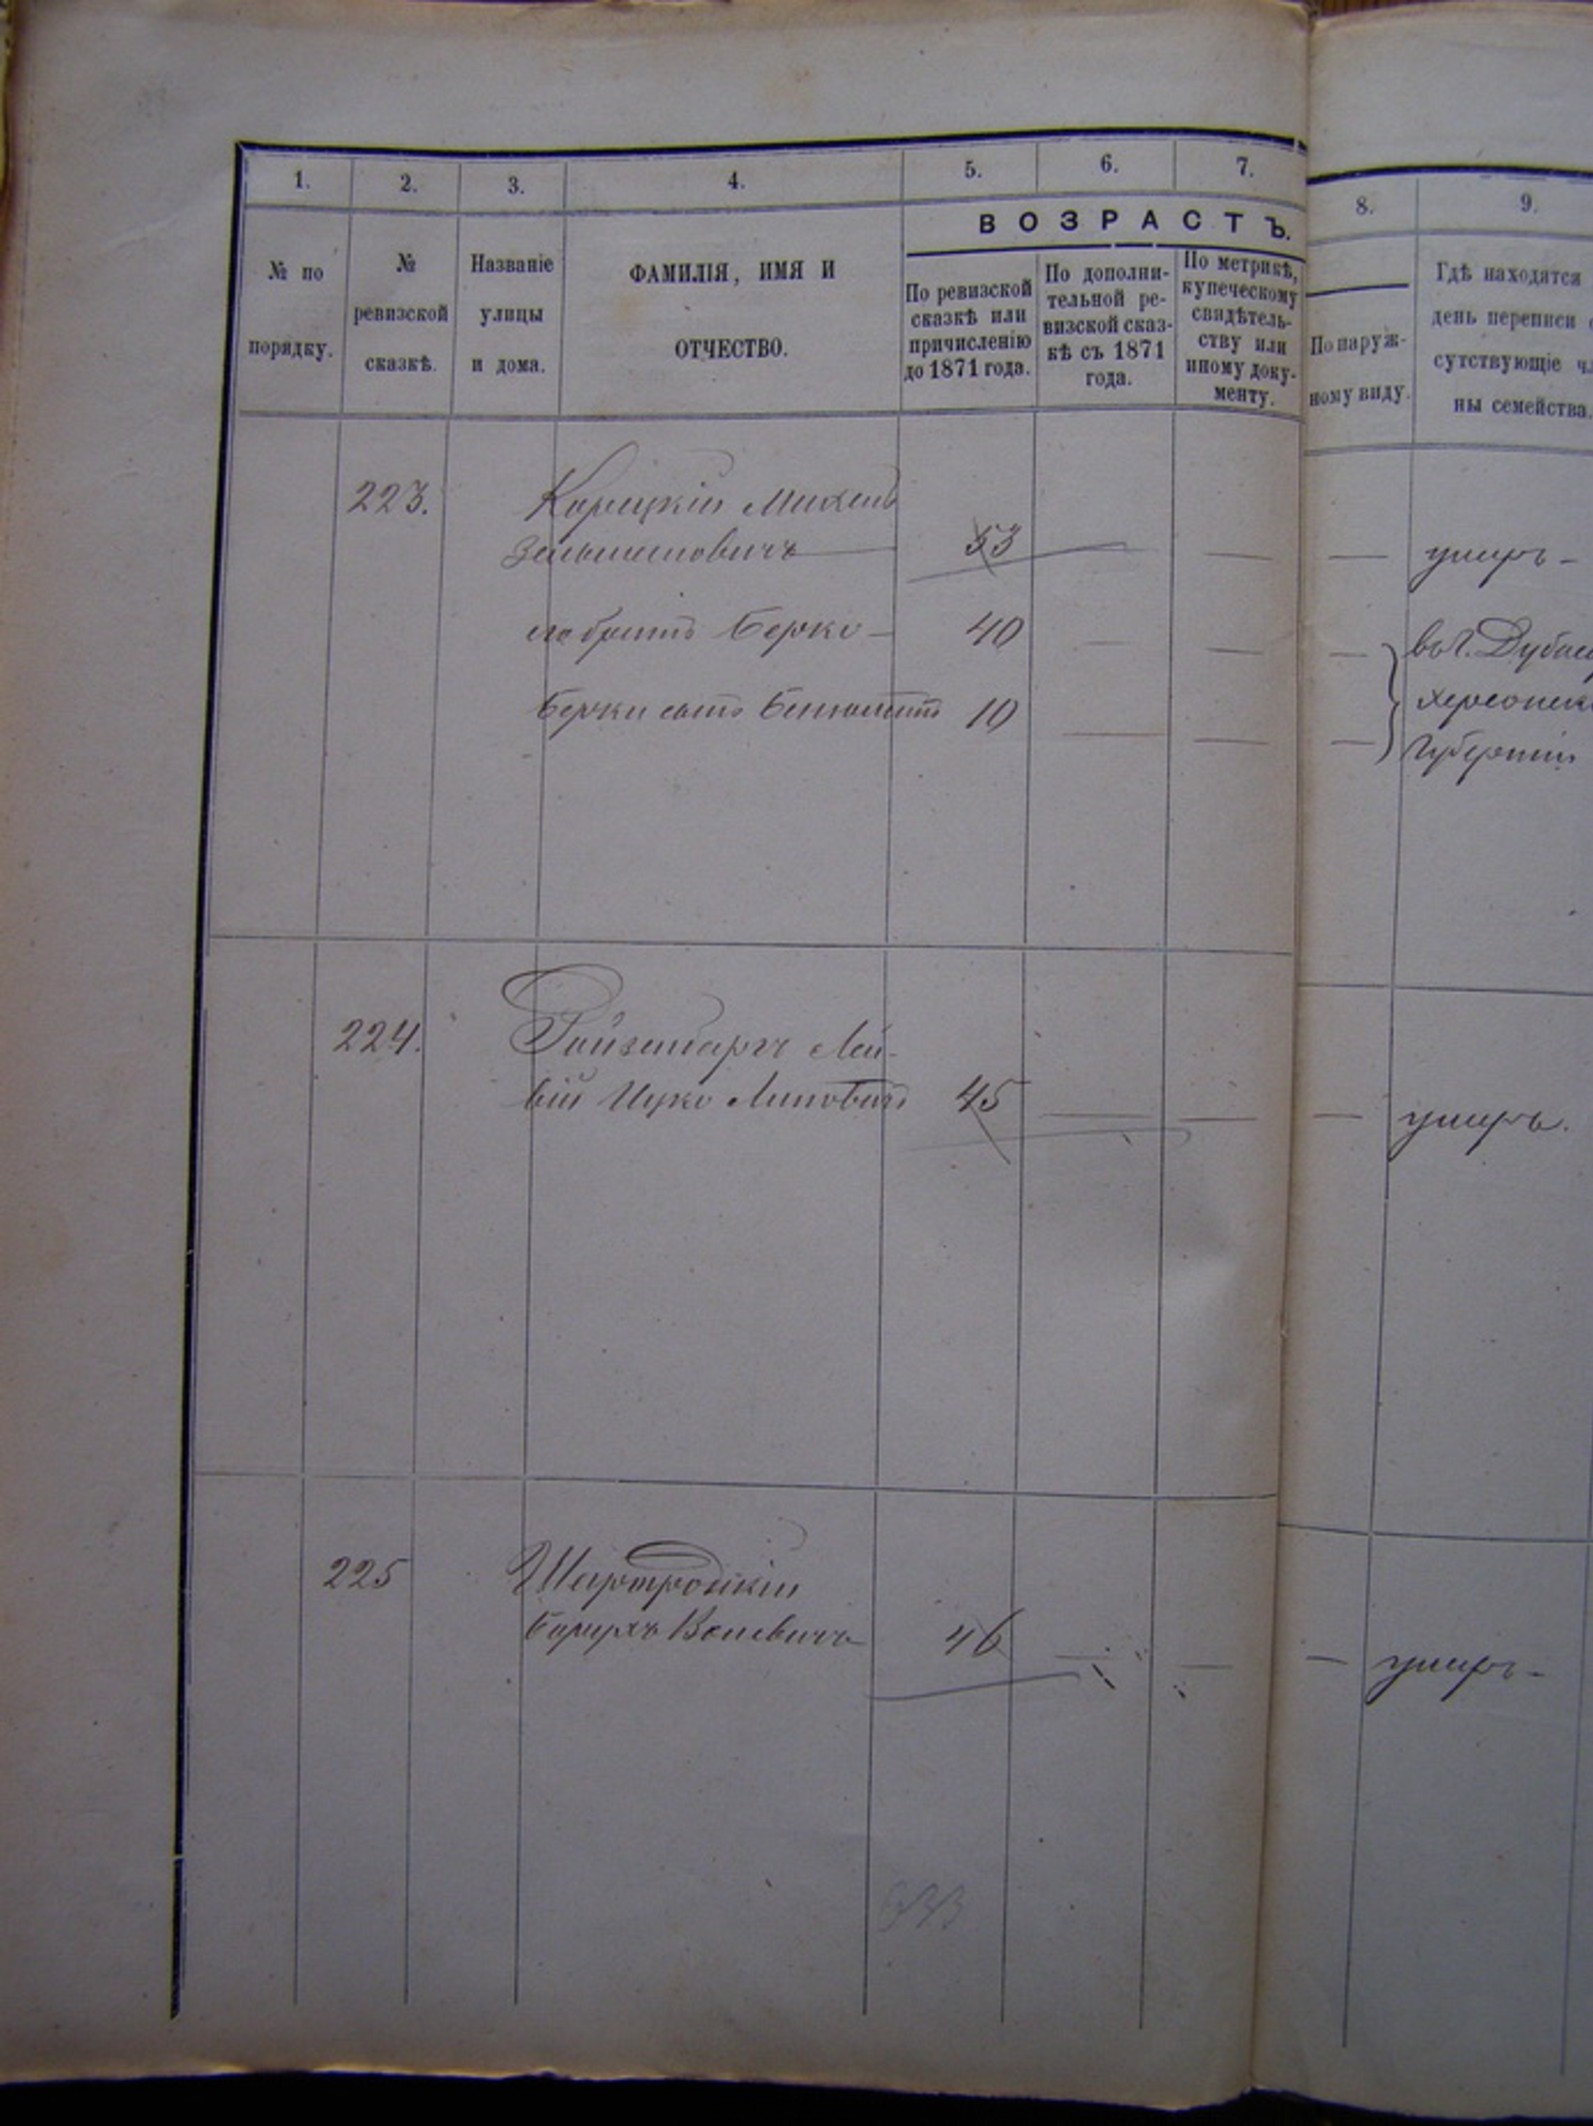 1.
2.
3.
4.
5.
6.
7.
8.
9.
ВОЗРАСТЪ.
№ по
порядку.
№
ревизской
сказкѣ.
Названіе
улицы
и дома.
ФАМИЛІЯ, ИМЯ И
ОТЧЕСТВО.
По ревизской
сказкѣ или
причисленію
до 1871 года.
По дополни-
тельной ре-
визской сказ-
кѣ съ 1871
года.
По метрикѣ,
купеческому
свидѣтель-
ству или
иному доку-
менту.
По наруж-
ному виду.
Гдѣ находятся
день переписи
сутствующіе
ны семейства.
223.
Корицкій Михель
Зельмановичъ 53 — — — умеръ -
его братъ Берко - 40 — — —
Берки сынъ Беніоминъ 10 — — —
въ г. Дубос
Херсонск
губерніи
224.
Ройзенбаргъ Лей-
бій Ицко Липовичъ 45 — — — умеръ.
225
Шаргродскій
Борухъ Велевичъ 46 — — — умеръ -